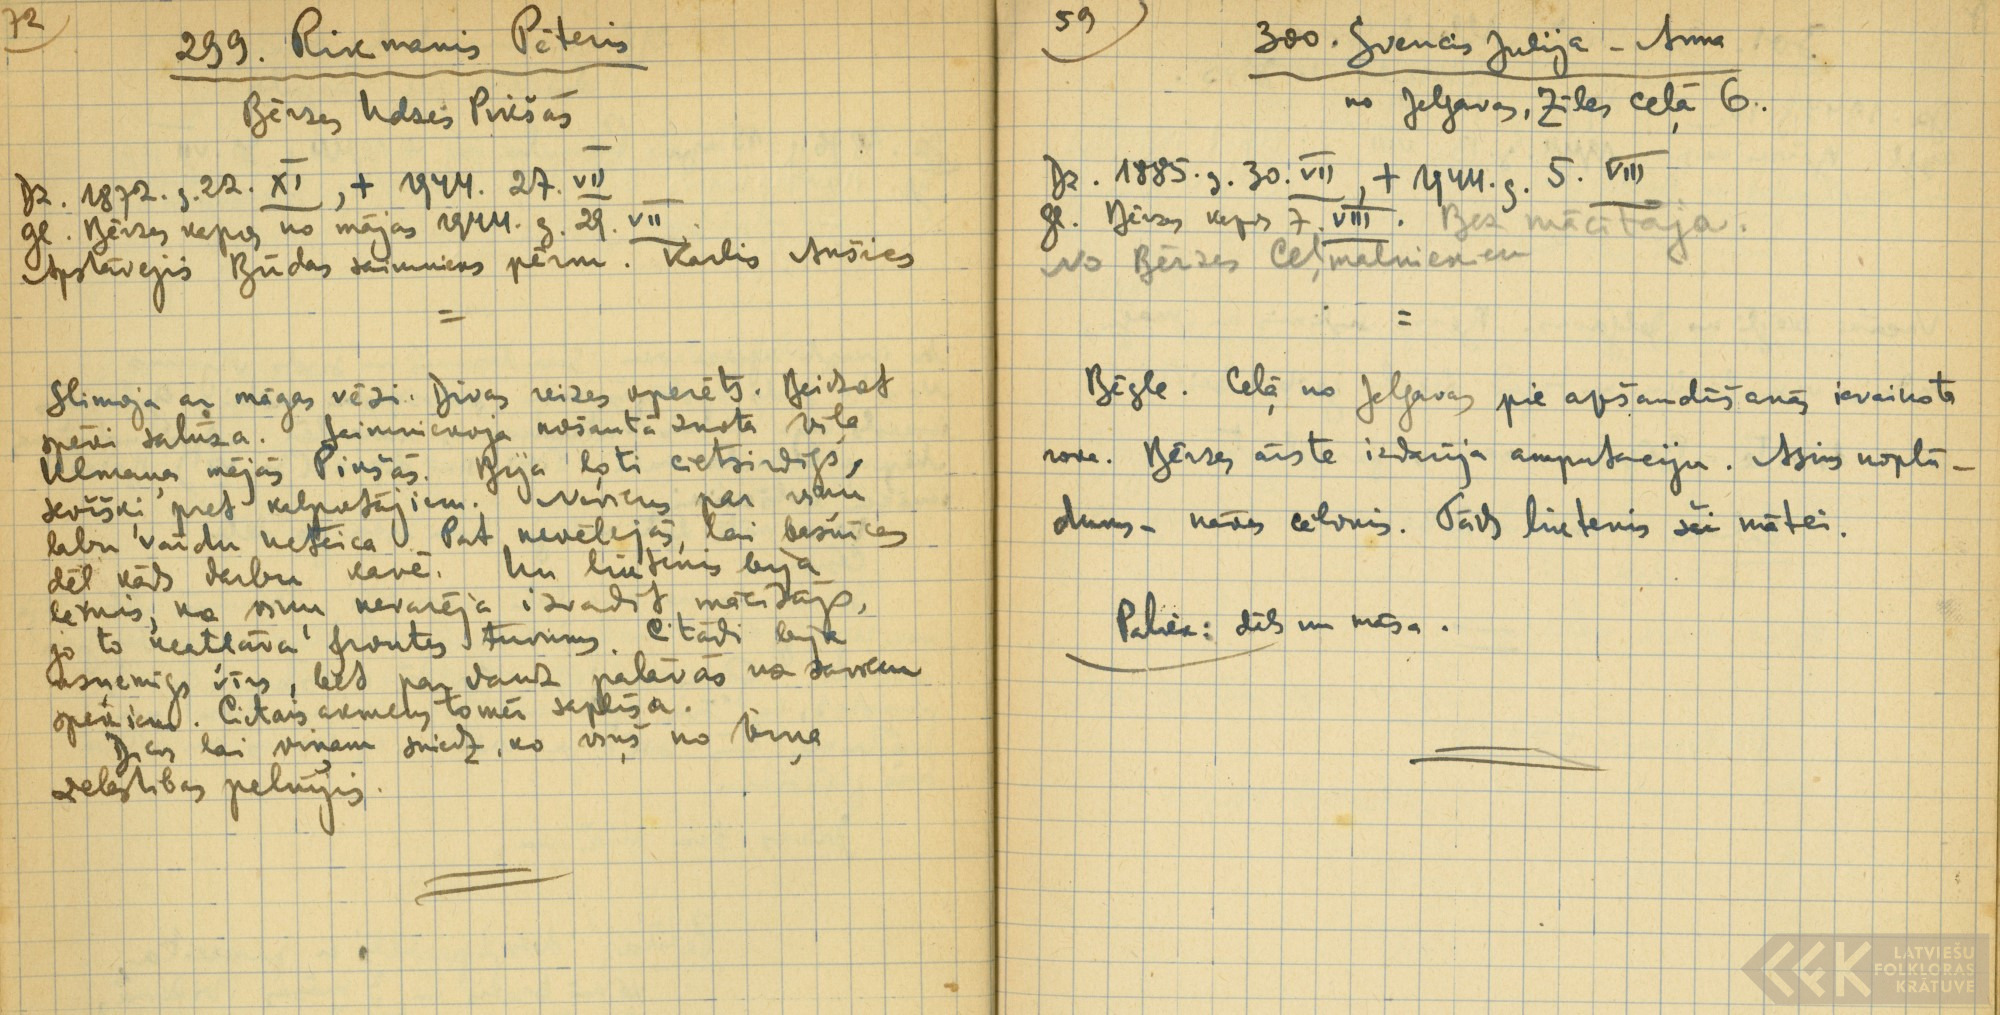 72
299. Rikmanis Pēteris
Bērzes Udzes Pikšās
Dz. 1872. g. 22. XI, + 1944. 27. VII
gl. Bērzes kapos no mājas 1944. g. 29. VII.
Apstāvejis Būdas saimnieks pērm. Karlis Ansies
=
Slimoja ar māgas vēzi. Divas reizes operēts. Beidzot
spēki salūza. Saimniekoja nošautā znota Viļa
Ulmaņa mājās Pikšās. Bija ļoti cietsirdīgs,
sevišķi pret kalpotājiem. Neviens par viņu
labu vārdu neteica. Pat nevēlejās, lai basnīcas
dēļ kāds darbu kavē. Un liktenis bija
lēmis, ka viņu nevarēja izvadīt mācītājs,
jo to neatļāva frontes tuvums. Citādi bija
uzņēmīgs vīrs, bet par daudz paļāvās uz saviem
spēkiem. Cietais akmens tomēr saplīsa.
Dievs lai viņam sniedz, ko viņš no Viņa
žēlastības pelnījis.
59
300. Švencis Julija - Anna
no Jelgavas, Zīles ceļā 6.
Dz. 1885. g. 30. VII, + 1944. g. 5. VIII
gl. Bērzes kapos 7. VIII. Bez mācītāja.
No Bērzes Ceļmalniekiem
=
Bēgle. Ceļā no Jelgavas pie apšaudīšanās ievainota
roka. Bērzes ārste izdarīja amputaciju. Asins noplū-
dums - nāves cēlonis. Tāds liktenis šai mātei.
Paliek: dēls un māsa.
LATVIEŠU
FOLKLORAS
KRĀTUVE